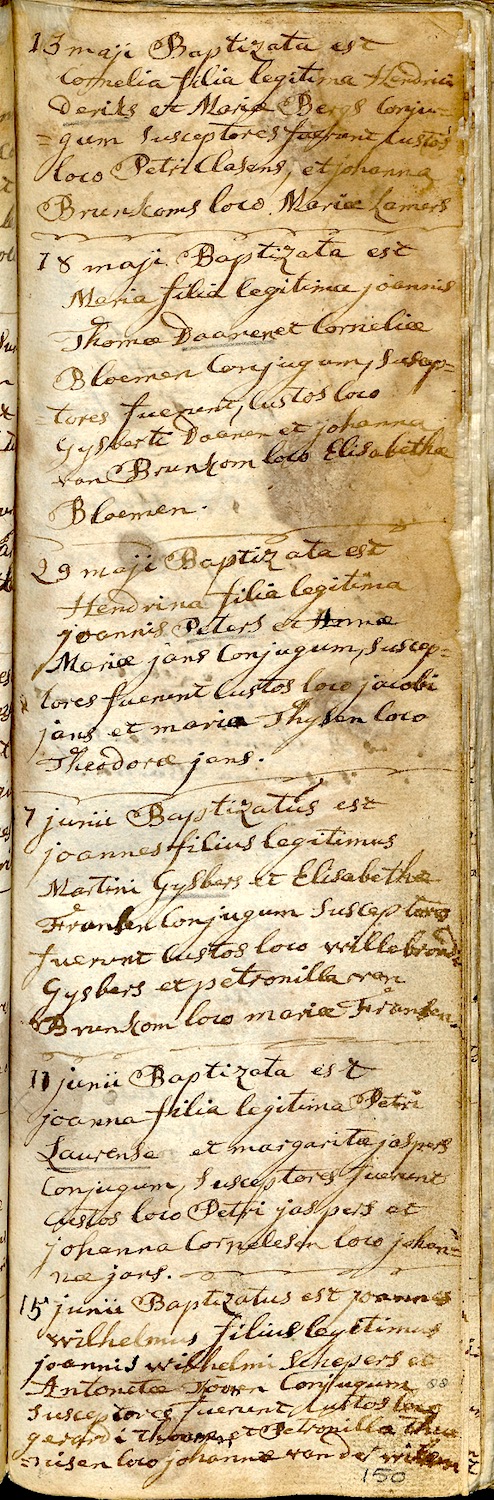 13 maji Baptizata est
Cornelia filia legitima Hendrici
Deriks et Mariæ Bergs Conju=
=gum Susceptores fuerunt Custos
loco Petri Clasens, et johanna
Brunkoms loco Mariæ Lamers
18 maji Baptizata est
Maria filia legitima joannis
Thomæ Daanen et Corneliæ
Bloemen Conjugum, Suscep=
=tores fuerunt, Custos loco
Gysberti Daanen et johanna
van Brunkom loco Elisabethæ
Bloemen.
29 maji Baptizata est
Hendrina filia legitima
joannis Peters et Annæ
Mariæ jans Conjugum, Suscep=
tores fuerunt Custos loco jacobi
jans et maria Thysen loco
Theodoræ jans.
7 junii Baptizatus est
joannes filius legitimus
Martini Gysbers et Elisabethæ
Franken Conjugum Susceptores
fuerunt Custos loco willebrordi
Gysbers et petronilla van
Brunkom loco mariæ Franken.
11 junii Baptizata est
joanna filia legitima Petri
Laurense et margaritæ jaspers
Conjugum, Susceptores fuerunt
Custos loco Petri jaspers et
johanna Cornelesen loco johan=
næ jans.
15 junii Baptizatus est joannes
wilhelmus filius legitimus
joannis wilhelmi Schepers et
Antonetæ Conjugum
Susceptores fuerunt, Custos loco
gerardi et Petronilla
=nisen loco johannæ van der
88
150